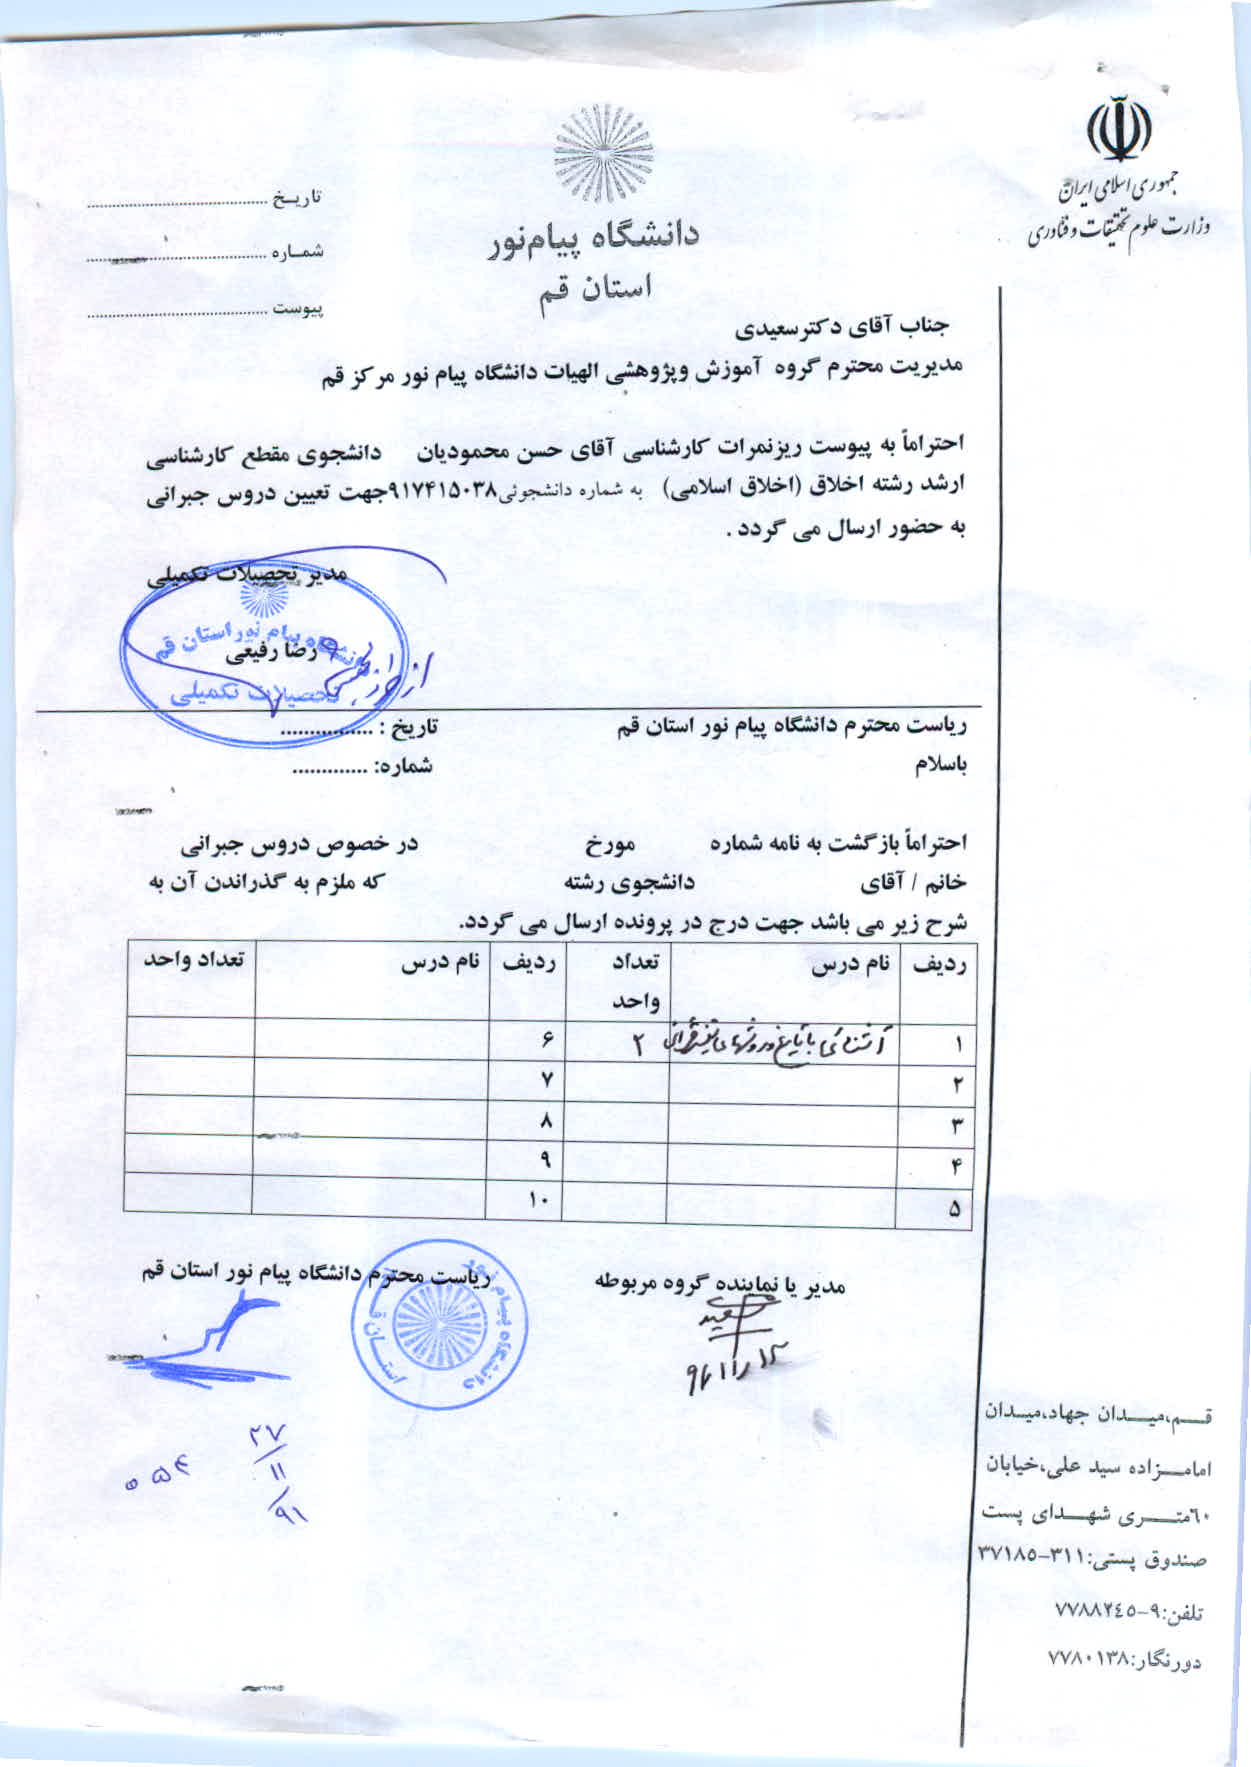 جمهوری اسلامی ایران
وزارت علوم تحقیقات و فناوری
دانشگاه پیام‌نور
استان قم
تاریـخ ........................................
شمـاره ........................................
پیوست ........................................
جناب آقای دکترسعیدی
مدیریت محترم گروه آموزش وپژوهشی الهیات دانشگاه پیام نور مرکز قم
احتراماً به پیوست ریزنمرات کارشناسی آقای حسن محمودیان دانشجوی مقطع کارشناسی
ارشد رشته اخلاق (اخلاق اسلامی) به شماره دانشجوئی۹۱۷۴۱۵۰۳۸جهت تعیین دروس جبرانی
به حضور ارسال می گردد .
مدیر تحصیلات تکمیلی
دانشگاه پیام نور استان قم
رضا رفیعی
تحصیلات تکمیلی
ریاست محترم دانشگاه پیام نور استان قم تاریخ : ................
باسلام شماره: .............
احتراماً بازگشت به نامه شماره مورخ در خصوص دروس جبرانی
خانم / آقای دانشجوی رشته که ملزم به گذراندن آن به
شرح زیر می باشد جهت درج در پرونده ارسال می گردد.
ردیف نام درس تعداد واحد ردیف نام درس تعداد واحد
۱ آشنائی با تاریخ و روشهای تفسیر قرآن ۲ ۶
۲ ۷
۳ ۸
۴ ۹
۵ ۱۰
مدیر یا نماینده گروه مربوطه ریاست محترم دانشگاه پیام نور استان قم
دانشگاه پیام نور
استان قم
۲۷
۱۱
۹۱
۰۵۴
قـم،میـدان جهاد،میـدان
امامـزاده سید علی،خیابان
۶۰متـری شهـدای پست
صندوق پستی:۳۱۱-۳۷۱۸۵
تلفن:۹-۷۷۸۸۲۴۵
دورنگار:۷۷۸۰۱۳۸